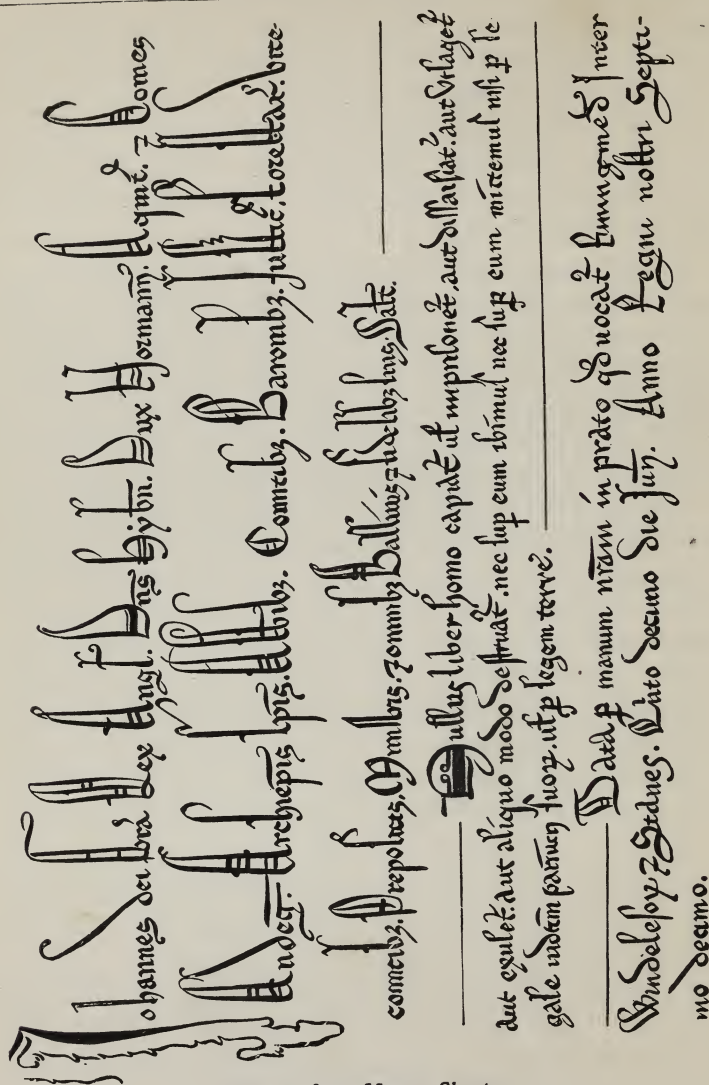 Johannes dei gra Rex Angl. Dns Hybn. Dux Normann. Aqnit. ⁊ Comes
Andeg. Archiepis Epis. Abbibz. Comitibz. Baronibz. Justic. Forestar. Vice-
comitibz. Prepositis. Ministris. ⁊ omnibz Ballivis ⁊ fidelibz suis. Salt.
Nullus liber homo capiat ut imprisonet. aut dissaisiat. aut utlaget
aut exulet. aut aliquo modo destruat. nec sup eum ibimus nec sup eum mittemus nisi p le
gale iudicm parium suoꝝ. ut p legem terre.
Data p manum nram in prato qd vocat Runingmed Inter
Windelesoꝝ ⁊ Stanes. Quinto decimo die Jun. Anno Regni nostri Septi-
mo decimo.